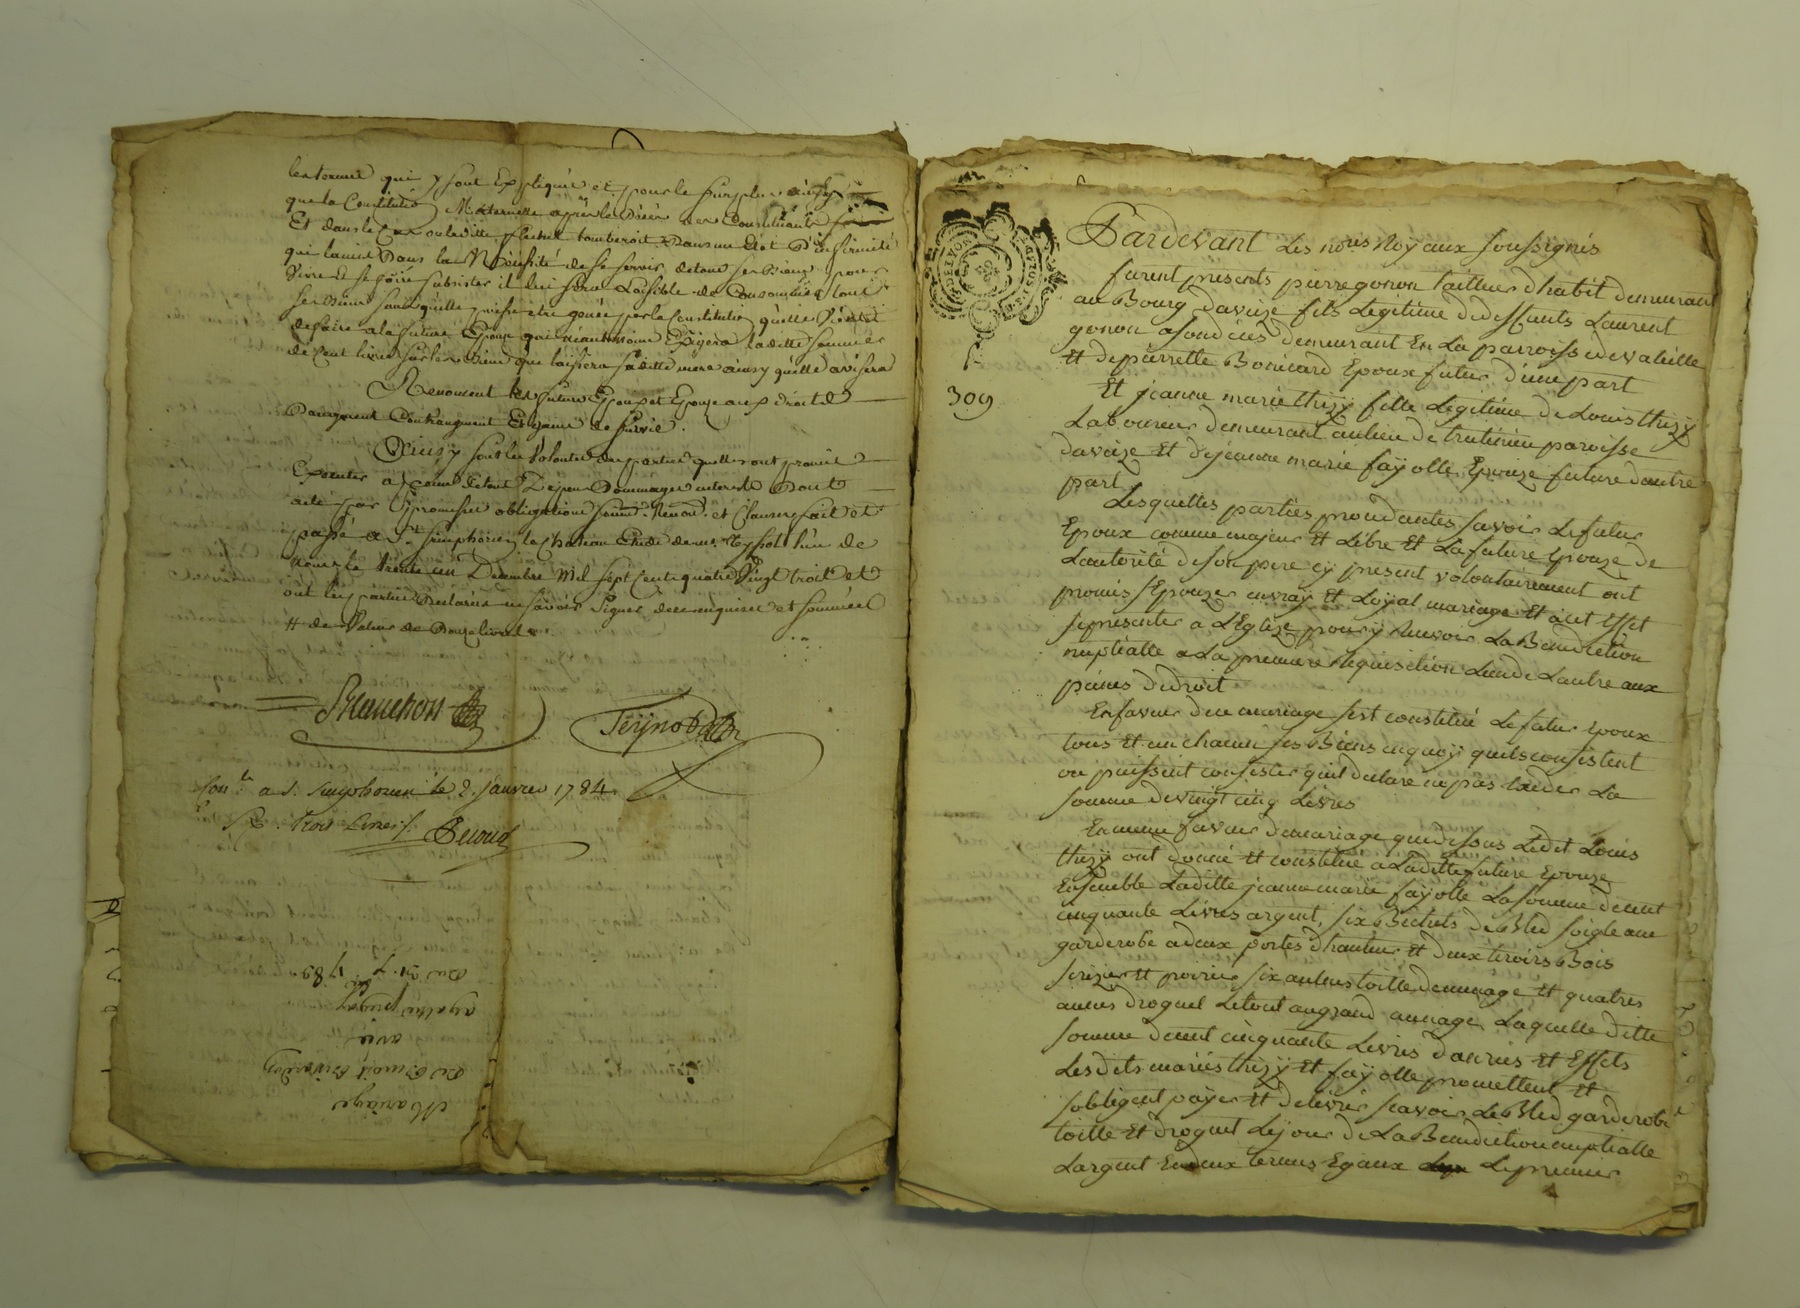 les termes qui y sont Expliqués et pour le surplus ainsy
que la Constitution Maternelle après le décès des Constituants
Et dans le cas ou laditte tomberoit dans un Etat d'infirmité
qui la mit Dans la Nécessité de se servir de tous ses Biens pour
Vivre Et se faire subsister il lui sera Loisible de Consommer tous
ses Biens sans qu'elle puisse etre genée par la Constitution qu'elle Vient
de faire a la future Epouse qui néantmoins Exigera laditte somme
de Cent livres sur les Biens que laissera saditte mère ainsy qu'elle avisera
Renoncent les futurs Epoux et Epouze aux droits
D'augment Contraugment Et gains de survie.
Ainsy sont les Volontés des parties qu'elles ont promis
Exécuter a peine de tous Dépens Dommages interets Dont
acte par promesse obligations soum. Renon. et Clauses fait et
passé a St simphorien le Chateau Etude de me. Teynod l'un de
nous le trente un Decembre Mil sept Cent quatre Vingt trois et
ont les parties Declarées ne sçavoir Signer de ce enquises et sommées
# de Valeur de Douze livres.
Teynod
Con.lé a S. Simphorien le 2. Janvier 1784
R. trois Livres
Mariage
De Benoit
avec
Du 31 x.bre 1783
309
Pardevant Les no.res Royaux soussignés
furent présents pierre gonon tailleur d'habit demeurant
au Bourg d'aveize fils Legitime de deffunts Laurent
gonon a son décès demeurant En La parroisse de valeille
Et de pierrette Bonnard Epoux futur d'une part
Et jeanne marie thizy fille Legitime de Louis thizy
Laboureur demeurant au lieu de paroisse
d'aveize Et de jeanne marie fayolle Epouze future d'autre
part
Lesquelles parties procédantes savoir Le futur
Epoux comme majeur Et Libre Et La future Epouze de
L'autorité de son pere cy present volontairement ont
promis s'Epouzer en vray Et Loyal mariage Et a cet Effet
se présenter a L'Eglize pour y Recevoir La Bénédiction
nuptialle a La premiere Requisition L'un de L'autre aux
peines de droit
En faveur de ce mariage s'est constitué Le futur Epoux
tous Et un chacun ses Biens en quoy qu'ils consistent
ou puissent consister qu'il déclare ne pas excéder La
somme de vingt cinq Livres
En meme faveur de mariage que dessus Ledit Louis
thizy ont donné Et constitué a Laditte future Epouze
Ensemble Laditte jeanne marie fayolle La somme de cent
cinquante Livres argent, six Bichets de Bled soigle une
garderobe a deux portes d'hauteur Et deux tiroirs Bois
serizier Et poirier six aulnes toille de menage Et quatres
aunes droguet Le tout au grand aunage, Laquelle ditte
somme de cent cinquante Livres danrées Et Effets
Lesdits mariés thizy Et fayolle promettent Et
s'obligent payer Et délivrer sçavoir Le Bled garderobe
toille Et droguet Le jour de La Bénédiction nuptialle
L'argent En deux termes Egaux Le premier